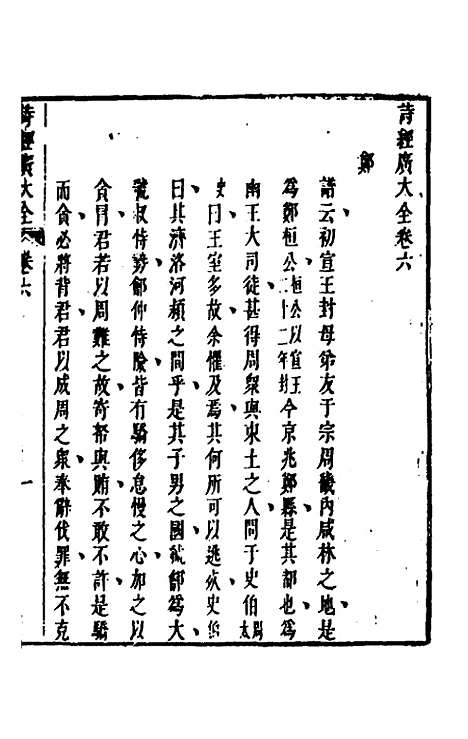 詩經廣大全卷六
鄭
譜云初宣王封母弟友于宗周畿內咸林之地是
為鄭桓公桓公以宣王二十二年封今京兆鄭縣是其都也為
幽王大司徒甚得周衆與東土之人問于史伯周太
史曰王室多故余懼及焉其何所可以逃死史伯
曰其濟洛河潁之間乎是其子男之國虢鄶為大
虢叔恃勢鄶仲恃險皆有驕侈怠慢之心加之以
貪冒君若以周難之故寄帑與賄不敢不許是驕
而貪必將背君君以成周之衆奉辭伐罪無不克
詩經廣大全 卷六
一